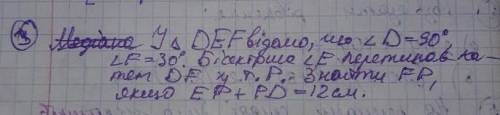 13 Медіана У Δ DEF відомо, що ∠D=90°
∠F=30°. Бісектриса ∠E перетинає ка-
тет DF у т. P. Знайти FP,
якщо EP + PD = 12 см.